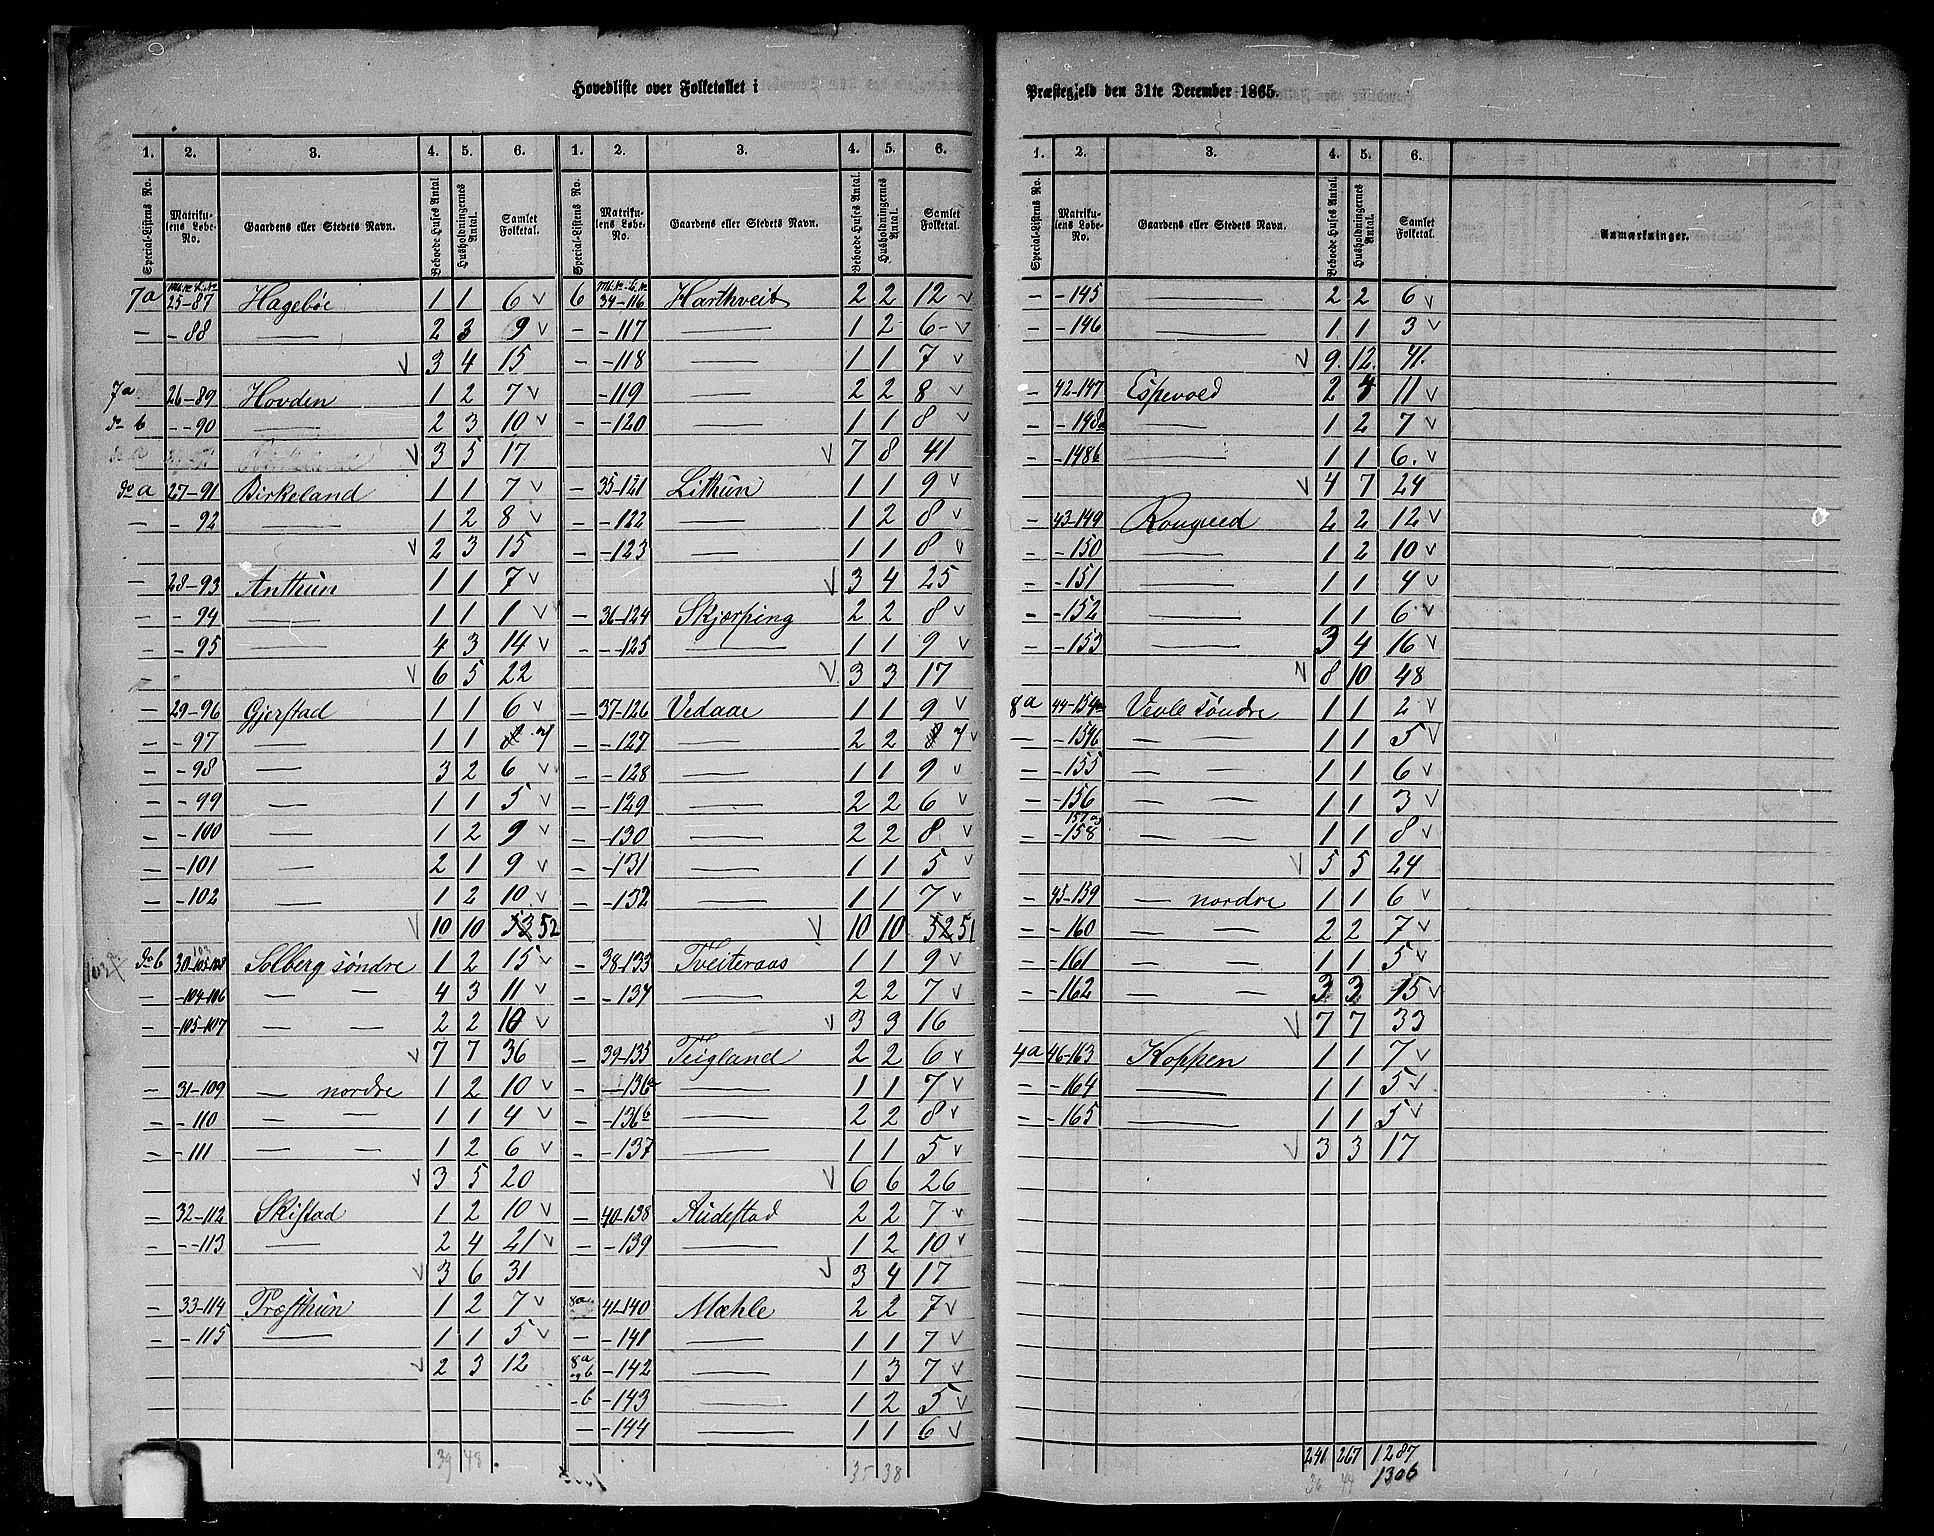 Hovedliste over Folketallet i
Præstegjeld den 31te December 1865.
1. 2. 3. 4. 5. 6. 1. 2. 3. 4. 5. 6.
Special-Listens No. Matrikulens Løbe-No. Gaardens eller Stedets Navn. Beboede Huses Antal Husholdningernes Antal. Samlet Folketal. Special-Listens No. Matrikulens Løbe-No. Gaardens eller Stedets Navn. Beboede Huses Antal. Husholdningernes Antal. Samlet Folketal.
7a 25-87 Hagebøe 1 1 6 v
— - 88 — 2 3 9 v
v 3 4 15
7a 26-89 Hovden 1 2 7 v
do b - -90 — 2 3 10 v
v 3 5 17
do a 27-91 Birkeland 1 1 7 v
— - 92 — 1 2 8 v
v 2 3 15
— 28-93 Anthun 1 1 7 v
— - 94 — 1 1 1 v
— - 95 — 4 3 14 v
v 6 5 22
— 29-96 Gjerstad 1 1 6 v
— - 97 — 1 1 7
— - 98 — 3 2 6 v
— - 99 — 1 1 5 v
— - 100 — 1 2 9 v
— -101 — 2 1 9 v
— - 102 — 1 2 10 v
v 10 10 53 52
do b 30- Solberg søndre 1 2 15 v
— -104-106 — — 4 3 11 v
— -105-107 — — 2 2 10 v
v 7 7 36
— 31-109 — nordre 1 2 10 v
— - 110 — — 1 1 4 v
— - 111 — — 1 2 6 v
v 3 5 20
— 32-112 Skistad 1 2 10 v
— - -113 — 2 4 21 v
v 3 6 31
— 33-114 Træsthun 1 2 7 v
— - 115 — 1 1 5 v
v 2 3 12
39 48
6 34-116 Harthveit 2 2 12 v
— -117 — 1 2 6- v
— -118 — 1 1 7 v
-119 — 2 2 8 v
— -120 — 1 1 8 v
v 7 8 41
— 35-121 Lithun 1 1 9 v
— -122 — 1 2 8 v
— -123 — 1 1 8 v
v 3 4 25
— 36-124 Skjerping 2 2 8 v
— - -125 — 1 1 9 v
v 3 3 17
— 37-126 Vedaae 1 1 9 v
— -127 — 2 2 7 v
— -128 — 1 1 9 v
— -129 — 2 2 6 v
— -130 — 2 2 8 v
— -131 — 1 1 5 v
— -132 — 1 1 7 v
v 10 10 52 51
— 38-133 Tveiteraas 1 1 9 v
— -134 — 2 2 7 v
v 3 3 16
— 39-135 Teigland 2 2 6 v
— -136a — 1 1 7 v
— -136b — 2 2 8 v
— -137 — 1 1 5 v
v 6 6 26
— 40-138 Audestad 2 2 7 v
— -139 — 1 2 10 v
v 3 4 17
8a 41-140 Mæhle 2 2 7 v
— -141 — 1 1 7 v
8a og b -142 — 1 3 7 v
- b -143 — 1 2 5 v
— -144 — 1 1 6 v
35 38
1. 2. 3. 4. 5. 6.
Special-Listens No. Matrikulens Løbe-No. Gaardens eller Stedets Navn. Beboede Huses Antal. Husholdningernes Antal. Samlet Folketal. Anmærkninger.
— -145 — 2 2 6 v
— -146 — 1 1 3 v
v 9. 12. 41.
— 42-147 Espevold 2 4 11 v
— -148a — 1 2 7 v
— -148b — 1 1 6. v
v 4 7 24
— 43-149 Rongved 2 2 12 v
— -150 — 1 2 10 v
— -151 — 1 1 4 v
— -152 — 1 1 6 v
— -153 — 3 4 16 v
v 8 10 48
8a 44-154a Vevle søndre 1 1 2 v
— -154b — — 1 1 5 v
— -155 — — 1 1 6 v
— -156 — — 1 1 3 v
— 157 og -158 — — 1 1 8 v
v 5 5 24
— 45-159 — nordre 1 1 6 v
— -160 — — 2 2 7 v
— -161 — — 1 1 5 v
— -162 — — 3 3 15 v
v 7 7 33
4a 46-163 Koppen 1 1 7 v
— -164 — 1 1 5 v
— -165 — 1 1 5 v
v 3 3 17
241 267 1287
36 44 1306